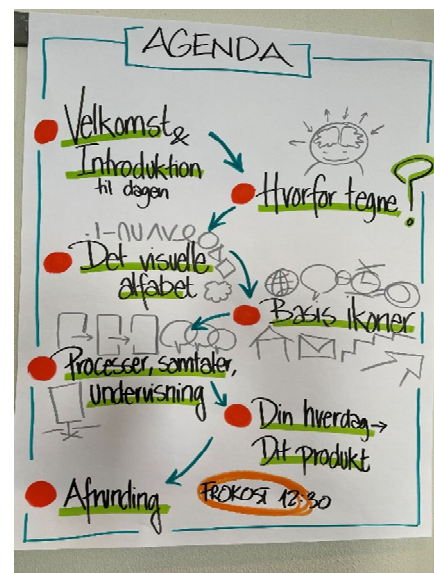 AGENDA
Velkomst &
Introduktion
til dagen
Hvorfor tegne ?
Det visuelle
alfabet
Basis ikoner
Processer, samtaler,
undervisning
Din hverdag →
Dit produkt
Afrunding
FROKOST 12:30